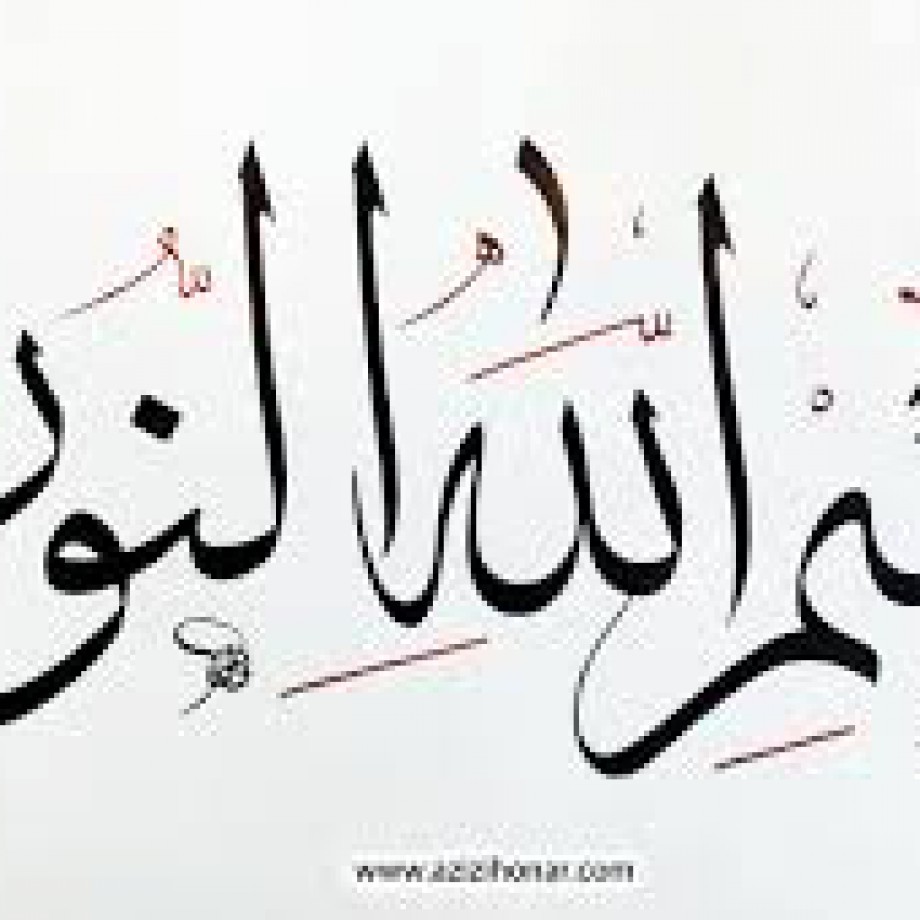 الله النور
www.azizihonar.com